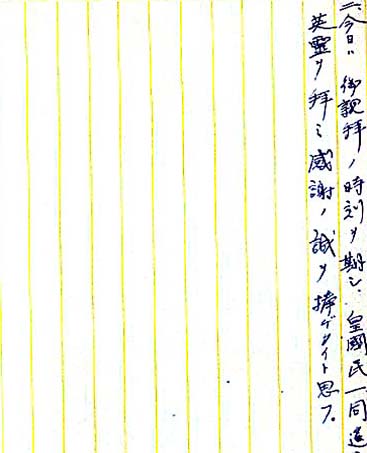 二、今日ハ御親拝ノ時刻ヲ期シ、皇國民一同遙
英靈ヲ拝ミ感謝ノ誠ヲ捧ゲタイト思フ。